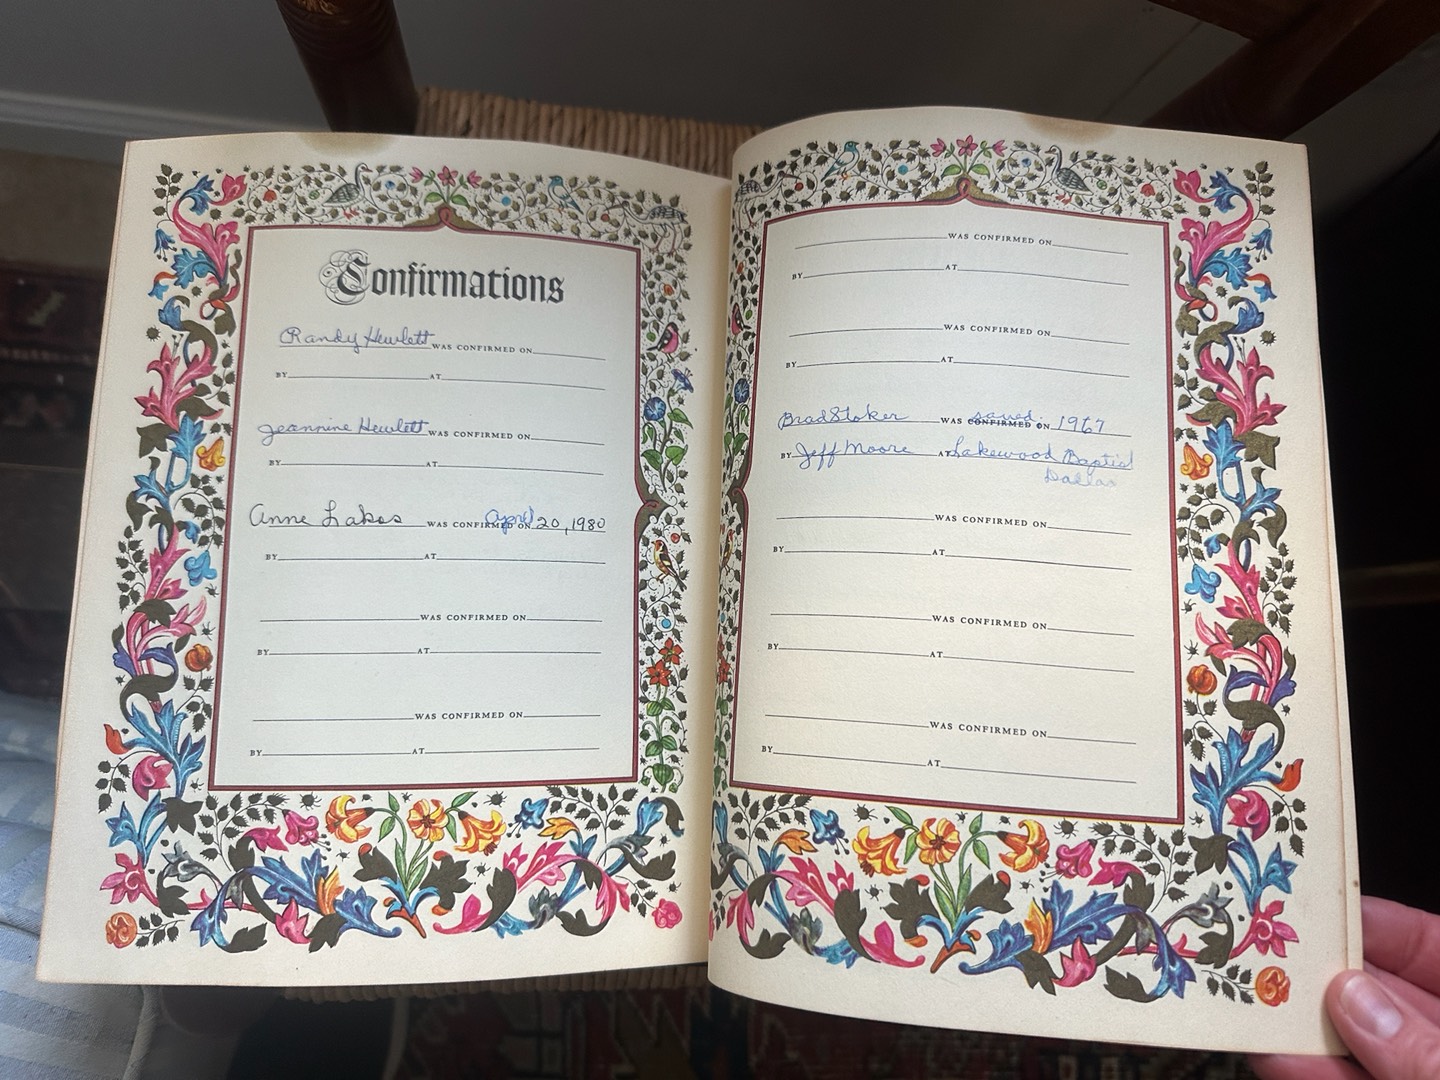 Confirmations
Randy Hewlett WAS CONFIRMED ON
BY AT
Jeannine Hewlett WAS CONFIRMED ON
BY AT
Anne Lakos WAS CONFIRMED ON April 20, 1980
BY AT
WAS CONFIRMED ON
BY AT
WAS CONFIRMED ON
BY AT
WAS CONFIRMED ON
BY AT
WAS CONFIRMED ON
BY AT
saved.
Brad Stoker WAS CONFIRMED ON 1967
BY Jeff Moore AT Lakewood Baptist
Dallas
WAS CONFIRMED ON
BY AT
WAS CONFIRMED ON
BY AT
WAS CONFIRMED ON
BY AT